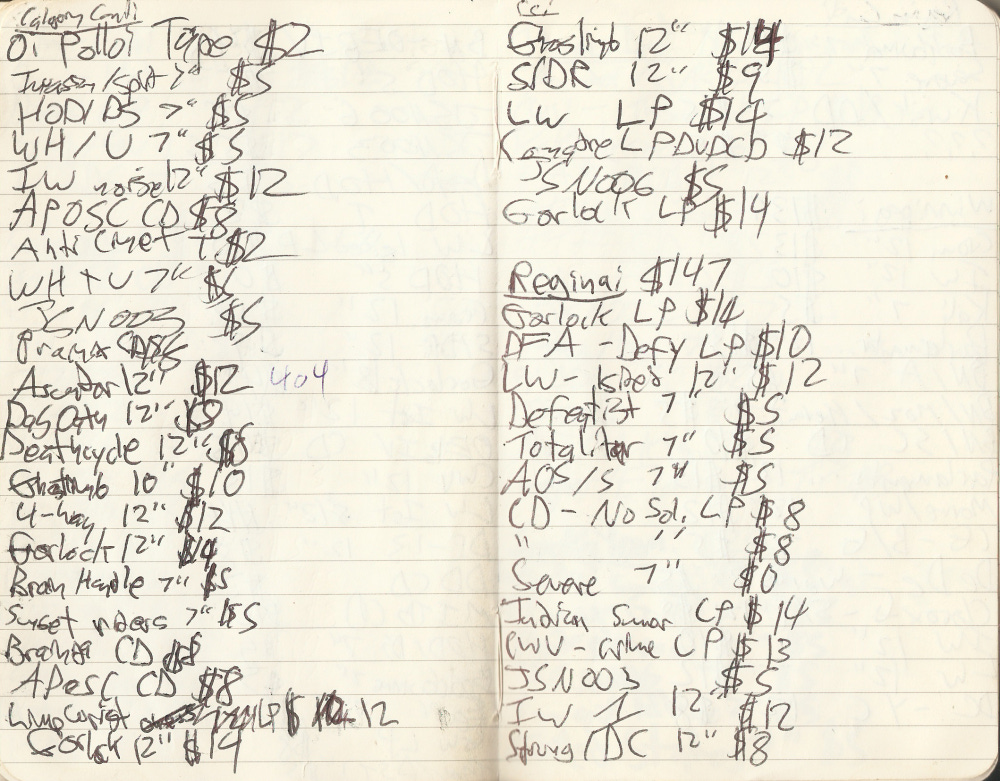 Calgary Cont.
Oi Polloi Tape $2
Invasion/split 7" $5
HOD/DS 7" $5
WH/U 7" $5
IW noise 12" $12
APOSC CD $8
Anti Cimex T $2
WH + U 7" $5
JSN003 $5
Ascender 12" $12 404
12" $8
Deathcycle 12" $8
Ghostlimb 10" $10
4-way 12" $12
Gorlock 12" $14
Brain Handle 7" $5
Sunset riders 7" $5
CD $8
APOSC CD $8
LP $ 12
Gorlock 12" $14
Ghostlimb 12" $14
S/DR 12" $9
LW LP $14
LPDVDCD $12
JSN006 $5
Gorlock LP $14
Regina: $147
Gorlock LP $14
DFA - Defy LP $10
LW - 12" $12
Defeatist 7" $5
Totalitar 7" $5
AOS/S 7" $5
CD - No Sol. LP $8
" " $8
Severe 7" $0
Indian Summer LP $14
LP $13
JSN003 $5
IW I 12" $12
Strung/DC 12" $8